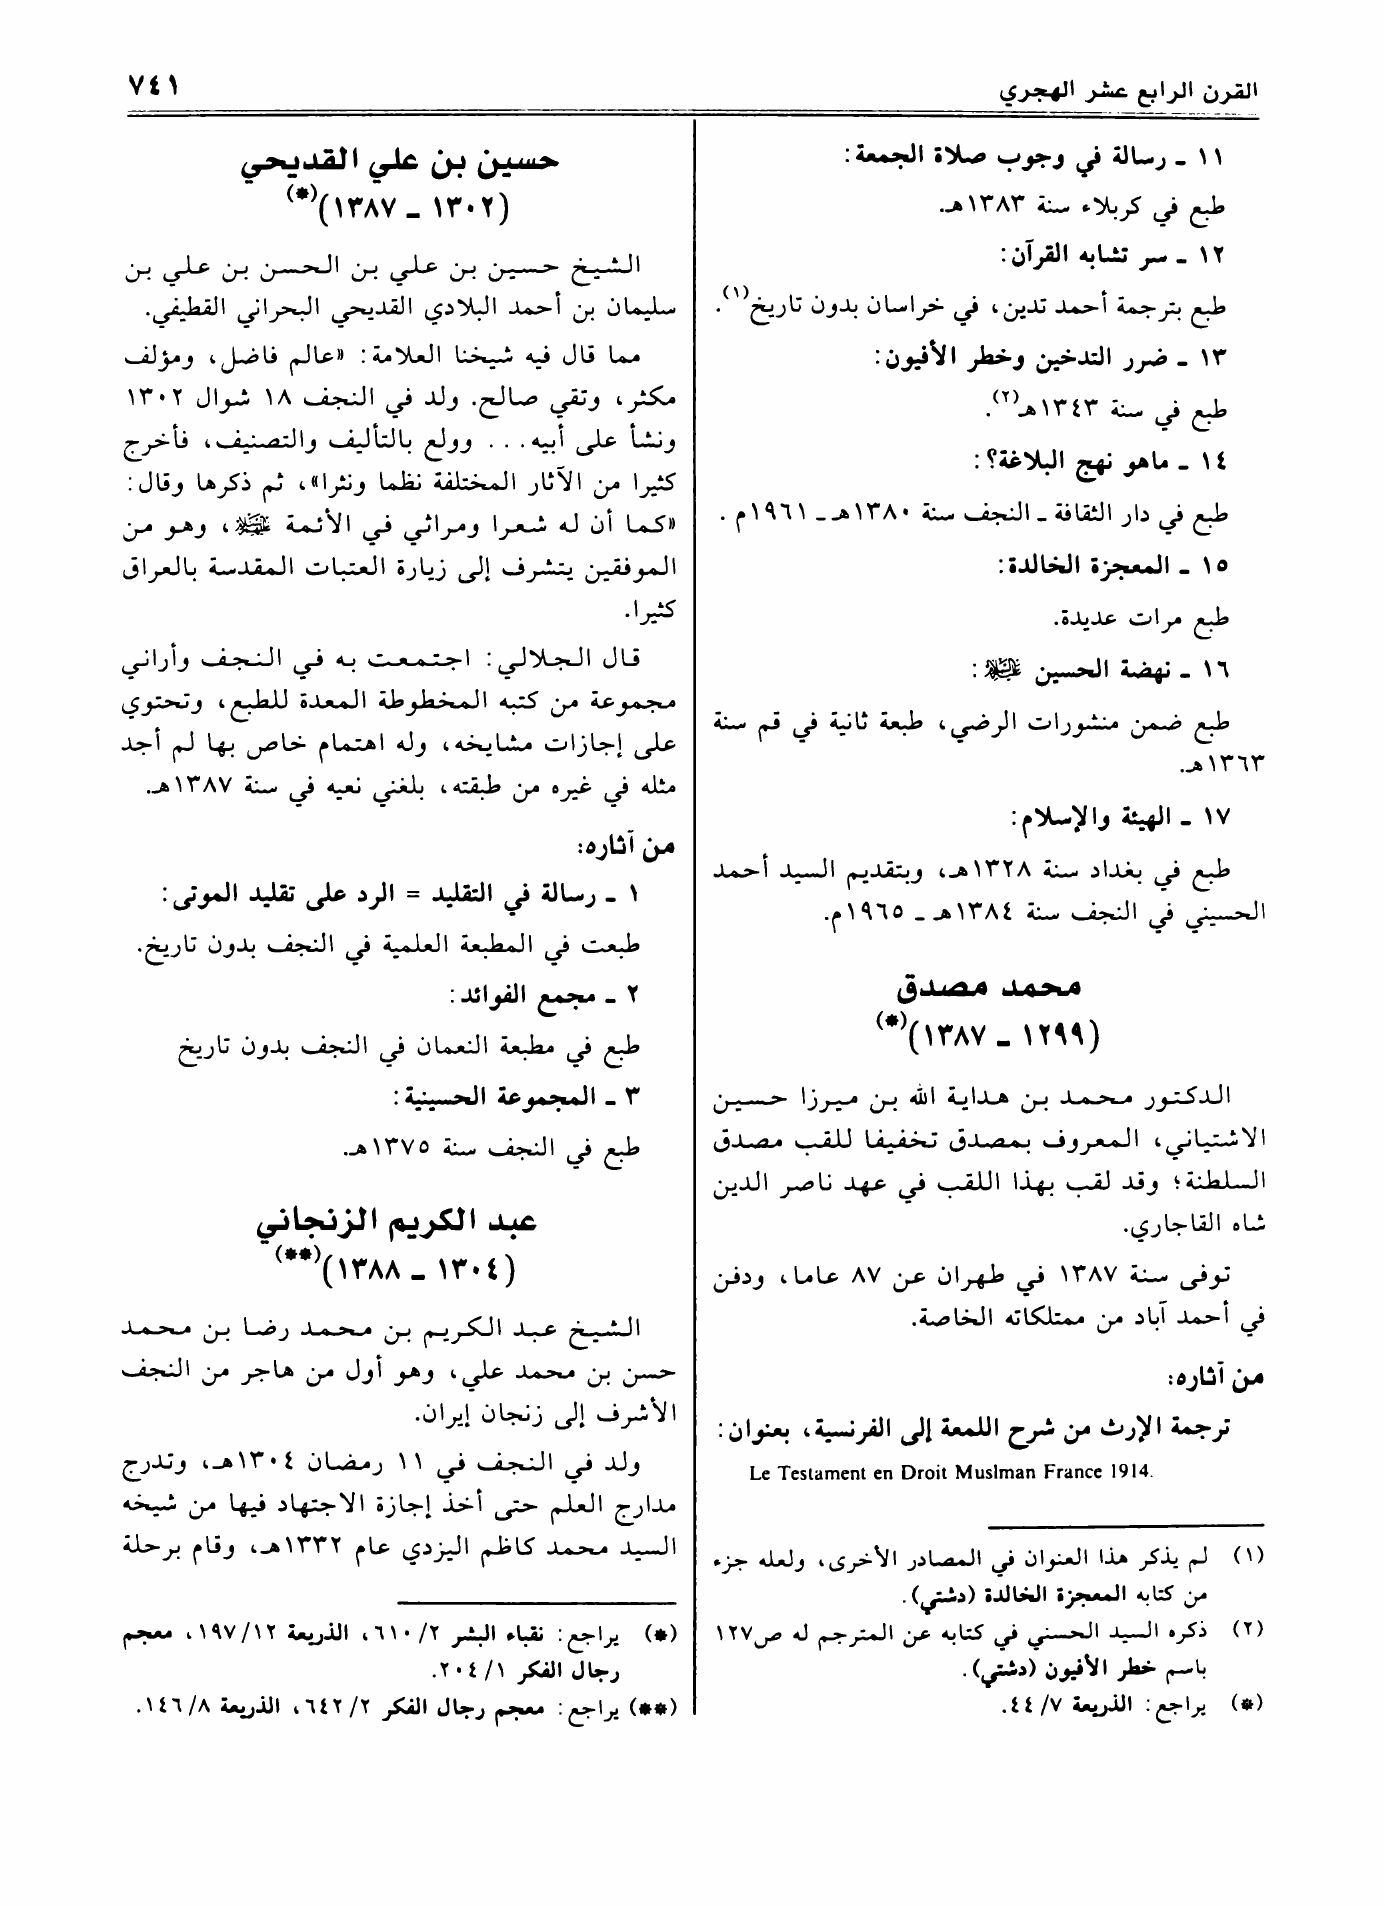 القرن الرابع عشر الهجري
٧٤١
١١ ـ رسالة في وجوب صلاة الجمعة:
طبع في كربلاء سنة ١٣٨٣هـ.
١٢ ـ سر تشابه القرآن:
طبع بترجمة أحمد تدين، في خراسان بدون تاريخ(١).
١٣ ـ ضرر التدخين وخطر الأفيون:
طبع في سنة ١٣٤٣هـ(٢).
١٤ ـ ماهو نهج البلاغة؟:
طبع في دار الثقافة ـ النجف سنة ١٣٨٠هـ ـ ١٩٦١م.
١٥ ـ المعجزة الخالدة:
طبع مرات عديدة.
١٦ ـ نهضة الحسين عليه السلام:
طبع ضمن منشورات الرضي، طبعة ثانية في قم سنة
١٣٦٣هـ.
١٧ ـ الهيئة والإسلام:
طبع في بغداد سنة ١٣٢٨هـ، وبتقديم السيد أحمد
الحسيني في النجف سنة ١٣٨٤هـ ـ ١٩٦٥م.
محمد مصدق
(١٢٩٩ ـ ١٣٨٧)(*)
الدكتور محمد بن هداية الله بن ميرزا حسين
الاشتياني، المعروف بمصدق تخفيفا للقب مصدق
السلطنة؛ وقد لقب بهذا اللقب في عهد ناصر الدين
شاه القاجاري.
توفى سنة ١٣٨٧ في طهران عن ٨٧ عاما، ودفن
في أحمد آباد من ممتلكاته الخاصة.
من آثاره:
ترجمة الإرث من شرح اللمعة إلى الفرنسية، بعنوان:
Le Testament en Droit Muslman France 1914.
(١) لم يذكر هذا العنوان في المصادر الأخرى، ولعله جزء
من كتابه المعجزة الخالدة (دشتي).
(٢) ذكره السيد الحسني في كتابه عن المترجم له ص١٢٧
باسم خطر الأفيون (دشتي).
(*) يراجع: الذريعة ٧/ ٤٤.
حسين بن علي القديحي
(١٣٠٢ ـ ١٣٨٧)(*)
الشيخ حسين بن علي بن الحسن بن علي بن
سليمان بن أحمد البلادي القديحي البحراني القطيفي.
مما قال فيه شيخنا العلامة: «عالم فاضل، ومؤلف
مكثر، وتقي صالح. ولد في النجف ١٨ شوال ١٣٠٢
ونشأ على أبيه... وولع بالتأليف والتصنيف، فأخرج
كثيرا من الآثار المختلفة نظما ونثرا»، ثم ذكرها وقال:
«كما أن له شعرا ومراثي في الأئمة عليهم السلام، وهو من
الموفقين يتشرف إلى زيارة العتبات المقدسة بالعراق
كثيرا.
قال الجلالي: اجتمعت به في النجف وأراني
مجموعة من كتبه المخطوطة المعدة للطبع، وتحتوي
على إجازات مشايخه، وله اهتمام خاص بها لم أجد
مثله في غيره من طبقته، بلغني نعيه في سنة ١٣٨٧هـ.
من آثاره:
١ ـ رسالة في التقليد = الرد على تقليد الموتى:
طبعت في المطبعة العلمية في النجف بدون تاريخ.
٢ ـ مجمع الفوائد:
طبع في مطبعة النعمان في النجف بدون تاريخ
٣ ـ المجموعة الحسينية:
طبع في النجف سنة ١٣٧٥هـ.
عبد الكريم الزنجاني
(١٣٠٤ ـ ١٣٨٨)(**)
الشيخ عبد الكريم بن محمد رضا بن محمد
حسن بن محمد علي، وهو أول من هاجر من النجف
الأشرف إلى زنجان إيران.
ولد في النجف في ١١ رمضان ١٣٠٤هـ، وتدرج
مدارج العلم حتى أخذ إجازة الاجتهاد فيها من شيخه
السيد محمد كاظم اليزدي عام ١٣٣٢هـ، وقام برحلة
(*) يراجع: نقباء البشر ٢/ ٦١٠، الذريعة ١٢/ ١٩٧، معجم
رجال الفكر ١/ ٢٠٤.
(**) يراجع: معجم رجال الفكر ٢/ ٦٤٢، الذريعة ٨/ ١٤٦.